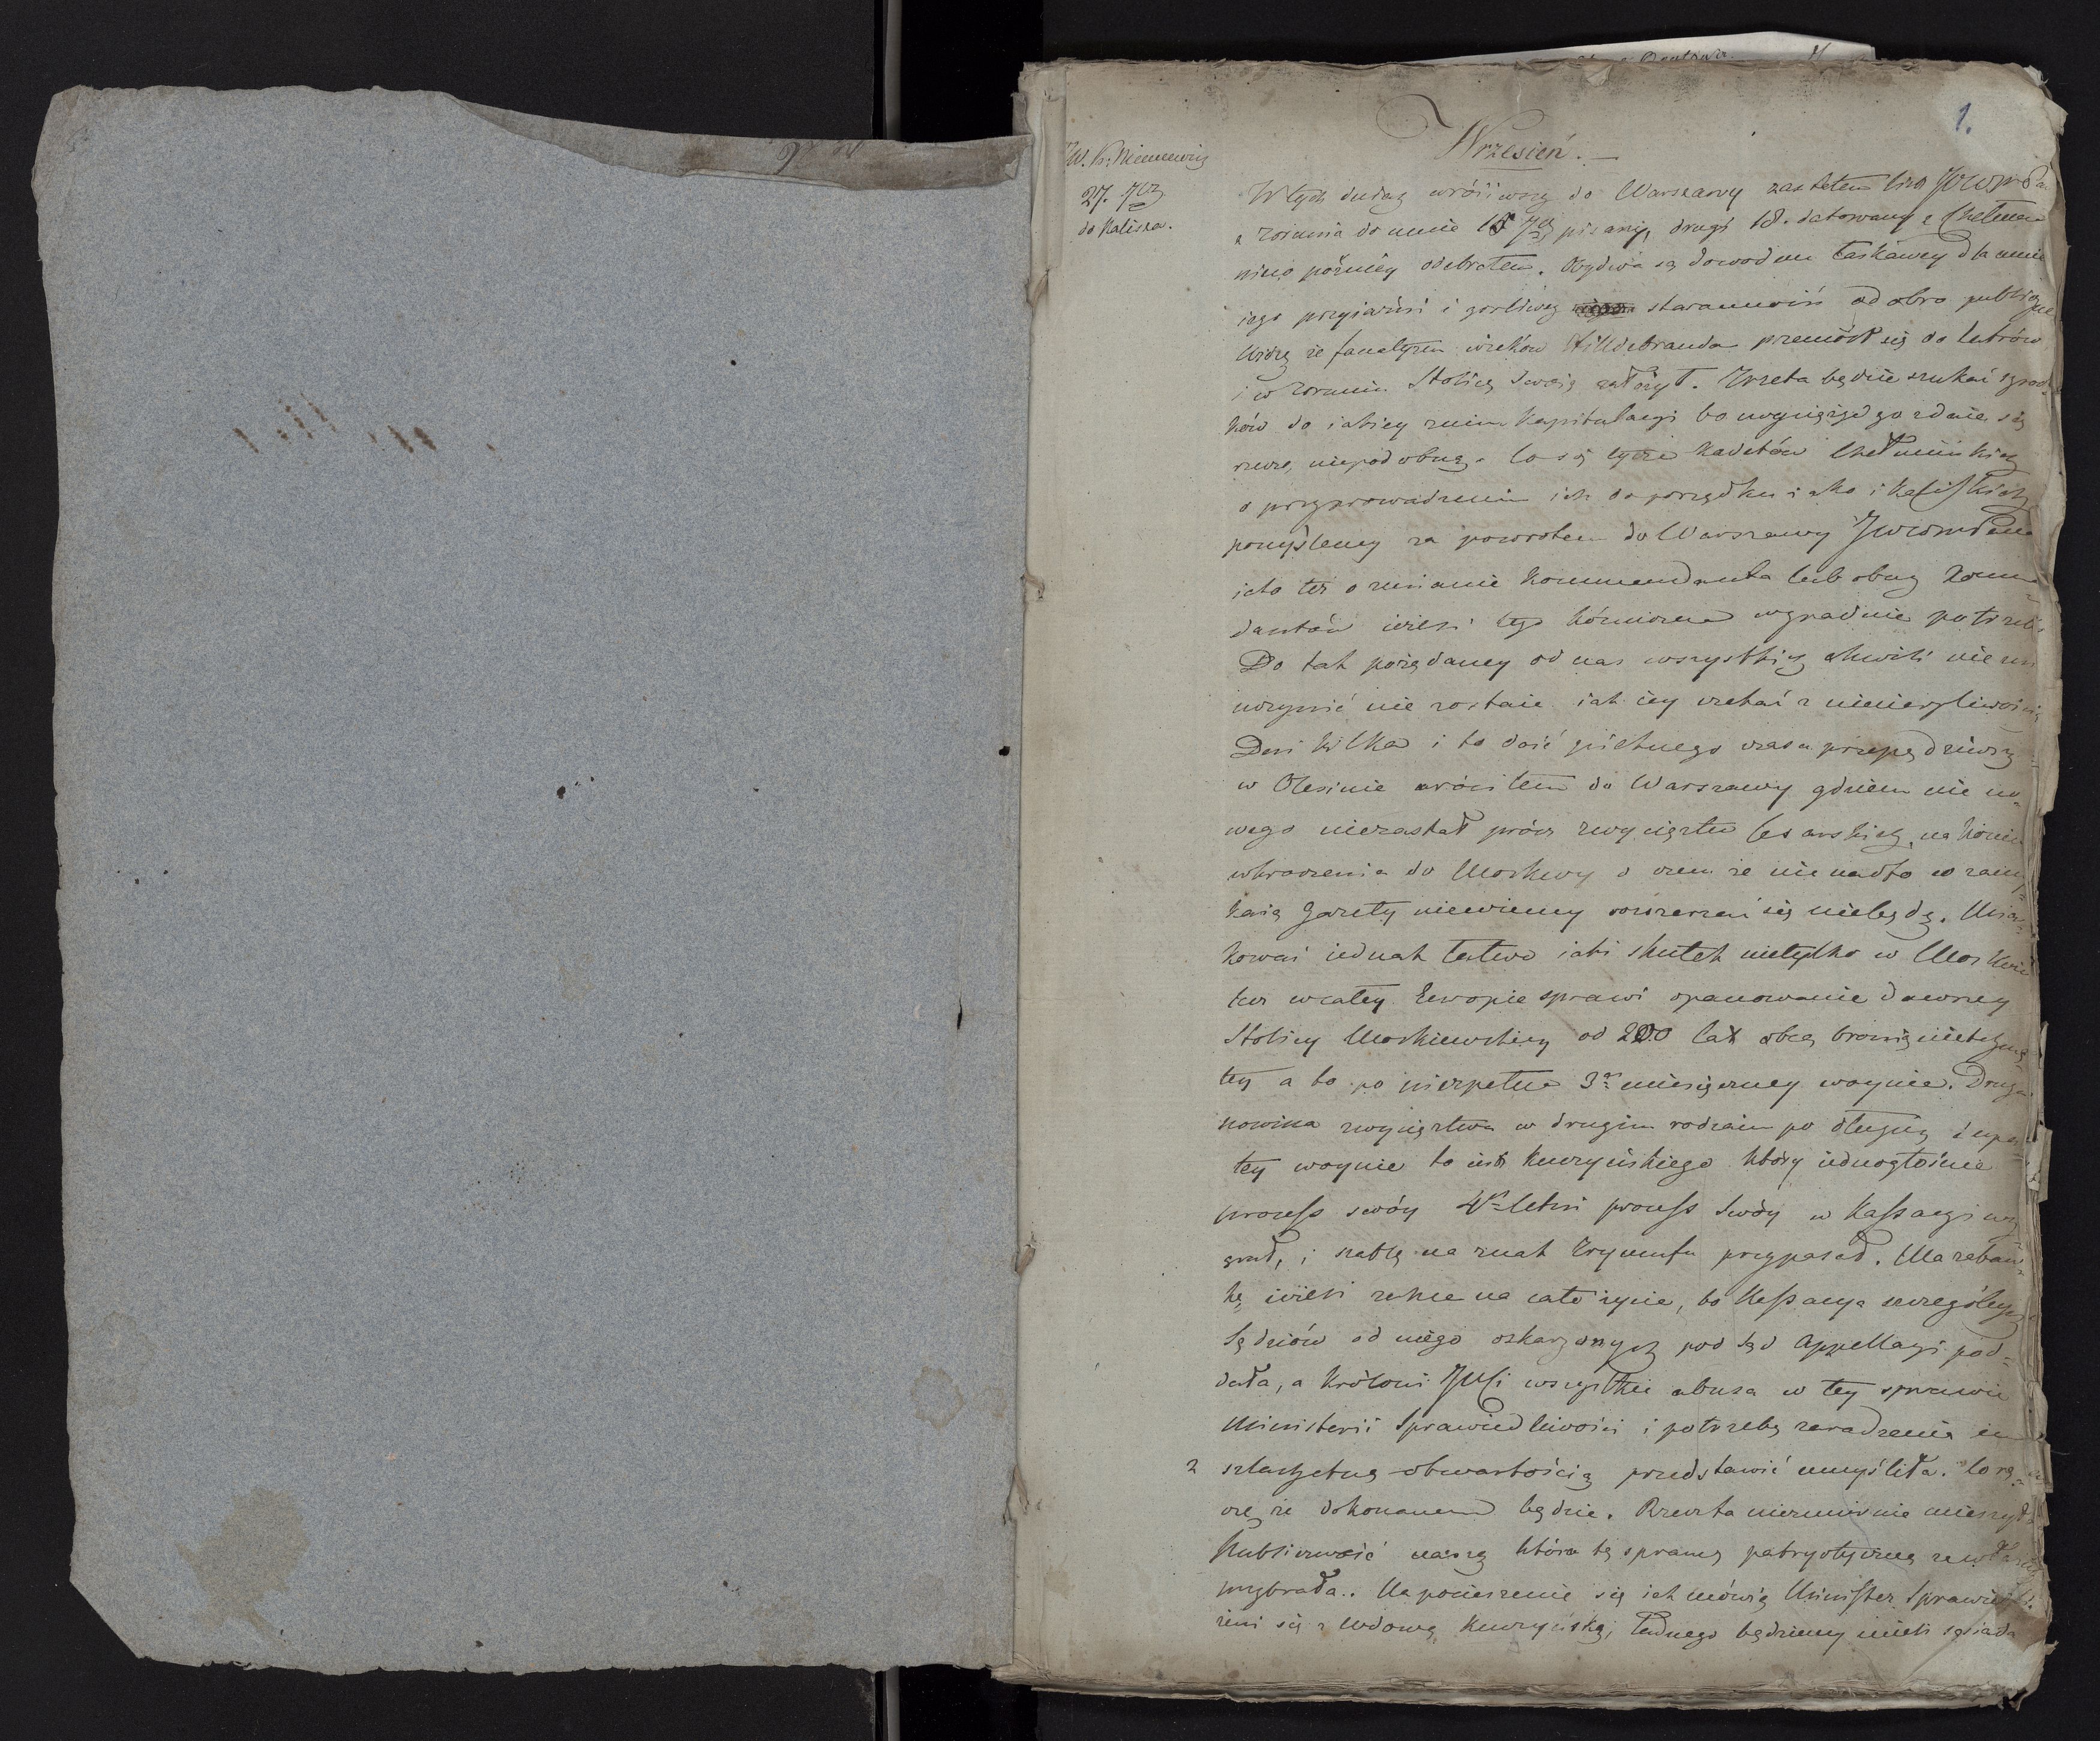 1.
Wrzesień. —
JW. X. Niemcewicz
27. 7br
do Kalisza.
W tych dniach wróciwszy do Warszawy zastałem list JWWPana
z Torunia do mnie 15 7br pisany, drugi 18. datowany z Chełmna
nieco później odebrałem. Obydwa są dowodem łaskawey dla mnie
iego przyiaźni i gorliwey staranności o dobro publiczne
Widzę że fanatyzm wieków Hilldebranda przeniósł się do Lutrów
i w Toruniu Stolicę swoią założył. Trzeba będzie szukać sposob-
ków do iakiey z nim kapitulacyi bo zwyciężyć go zdaie się
rzeczą niepodobną. Co się tycze Kadetów Chełmińskich
o przyprowadzeniu ich do porządku iako i Kaliskich
pomyślemy za powrotem do Warszawy JWWPana
iako też o zmianie Kommendanta lub obuch Komen-
dantów ieżeli tego konieczna wypadnie potrzeba
Do tak pożądaney od nas wszystkich chwili nic nam
uczynić nie zostaie iak iey czekać z niecierpliwością
Dni kilka i to dość pięknego czasu przepędziwszy
w Olesinie wróciłem do Warszawy gdziem nic no-
wego niezastał prócz zwycięztw Cesarskich, nakoniec
wkroczenia do Moskwy o czem że nic nadto co zamy-
kaią Gazety niewiemy rozszerzać się niebędę. Miar-
kować iednak łatwo iaki skutek nietylko w Moskwie
lecz w całey Europie sprawi opanowanie dawney
Stolicy Moskiewskiey od 200 lat obcą bronią nietknię-
tey a to po niezpełna 3ch miesięczney woynie. Druga
nowina zwycięztwa w drugim rodzaiu po długiey i upar-
tey woynie to iest Kuczyńskiego który iednogłośnie
process swóy 4ro letni process swóy w Kassacyi wy-
grał, i szablę na znak tryumfu przypasał. Ma zabaw-
kę ieżeli zechce na całe życie, bo Kassacya szczególnych
Sędziów od niego oskarżonych pod sąd Appellacyi pod-
dała, a Królowi JMCi wszystkie abusa w tey sprawie
Ministerii Sprawiedliwości i potrzebę zaradzenia im
z szlachetną otwartością przedstawić umyśliła. Co rę-
czę że dokonanem będzie. Rzecz ta niezmiernie cieszy
Publiczność naszą która tę sprawę patryotyczną za własną
przybrała. Na pocieszenie się iak mówią Minister Sprawiedl.
żeni się z wdową Kuczyńską, ładnego będziemy mieli sąsiada